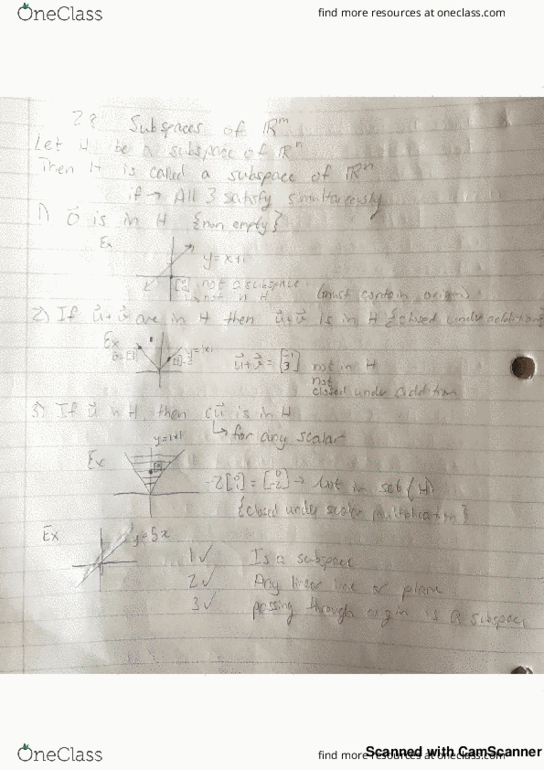 OneClass
find more resources at oneclass.com
2.8 Subspaces of ℝᵐ
Let H be a subspace of ℝⁿ
Then H is called a subspace of ℝⁿ
if → All 3 satisfy simultaneously
1) 0⃗ is in H {non empty}
Ex
y=x+1
not a subspace
is not in H (must contain origin)
2) If u⃗+v⃗ are in H then u⃗+v⃗ is in H {closed under addition}
Ex
y=|x|
u⃗+v⃗ = [-1 3] not in H
not
closed under addition
3) If u⃗ in H, then cu⃗ is in H
↳ for any scalar
Ex
-2[0 1] = [0 -2] → Not in set (H)
{closed under scalar multiplication}
Ex
y=5x
1 ✓ Is a subspace
2 ✓ Any linear line or plane
3 ✓ passing through origin is a subspace
OneClass
find more resources at oneclass.com
Scanned with CamScanner